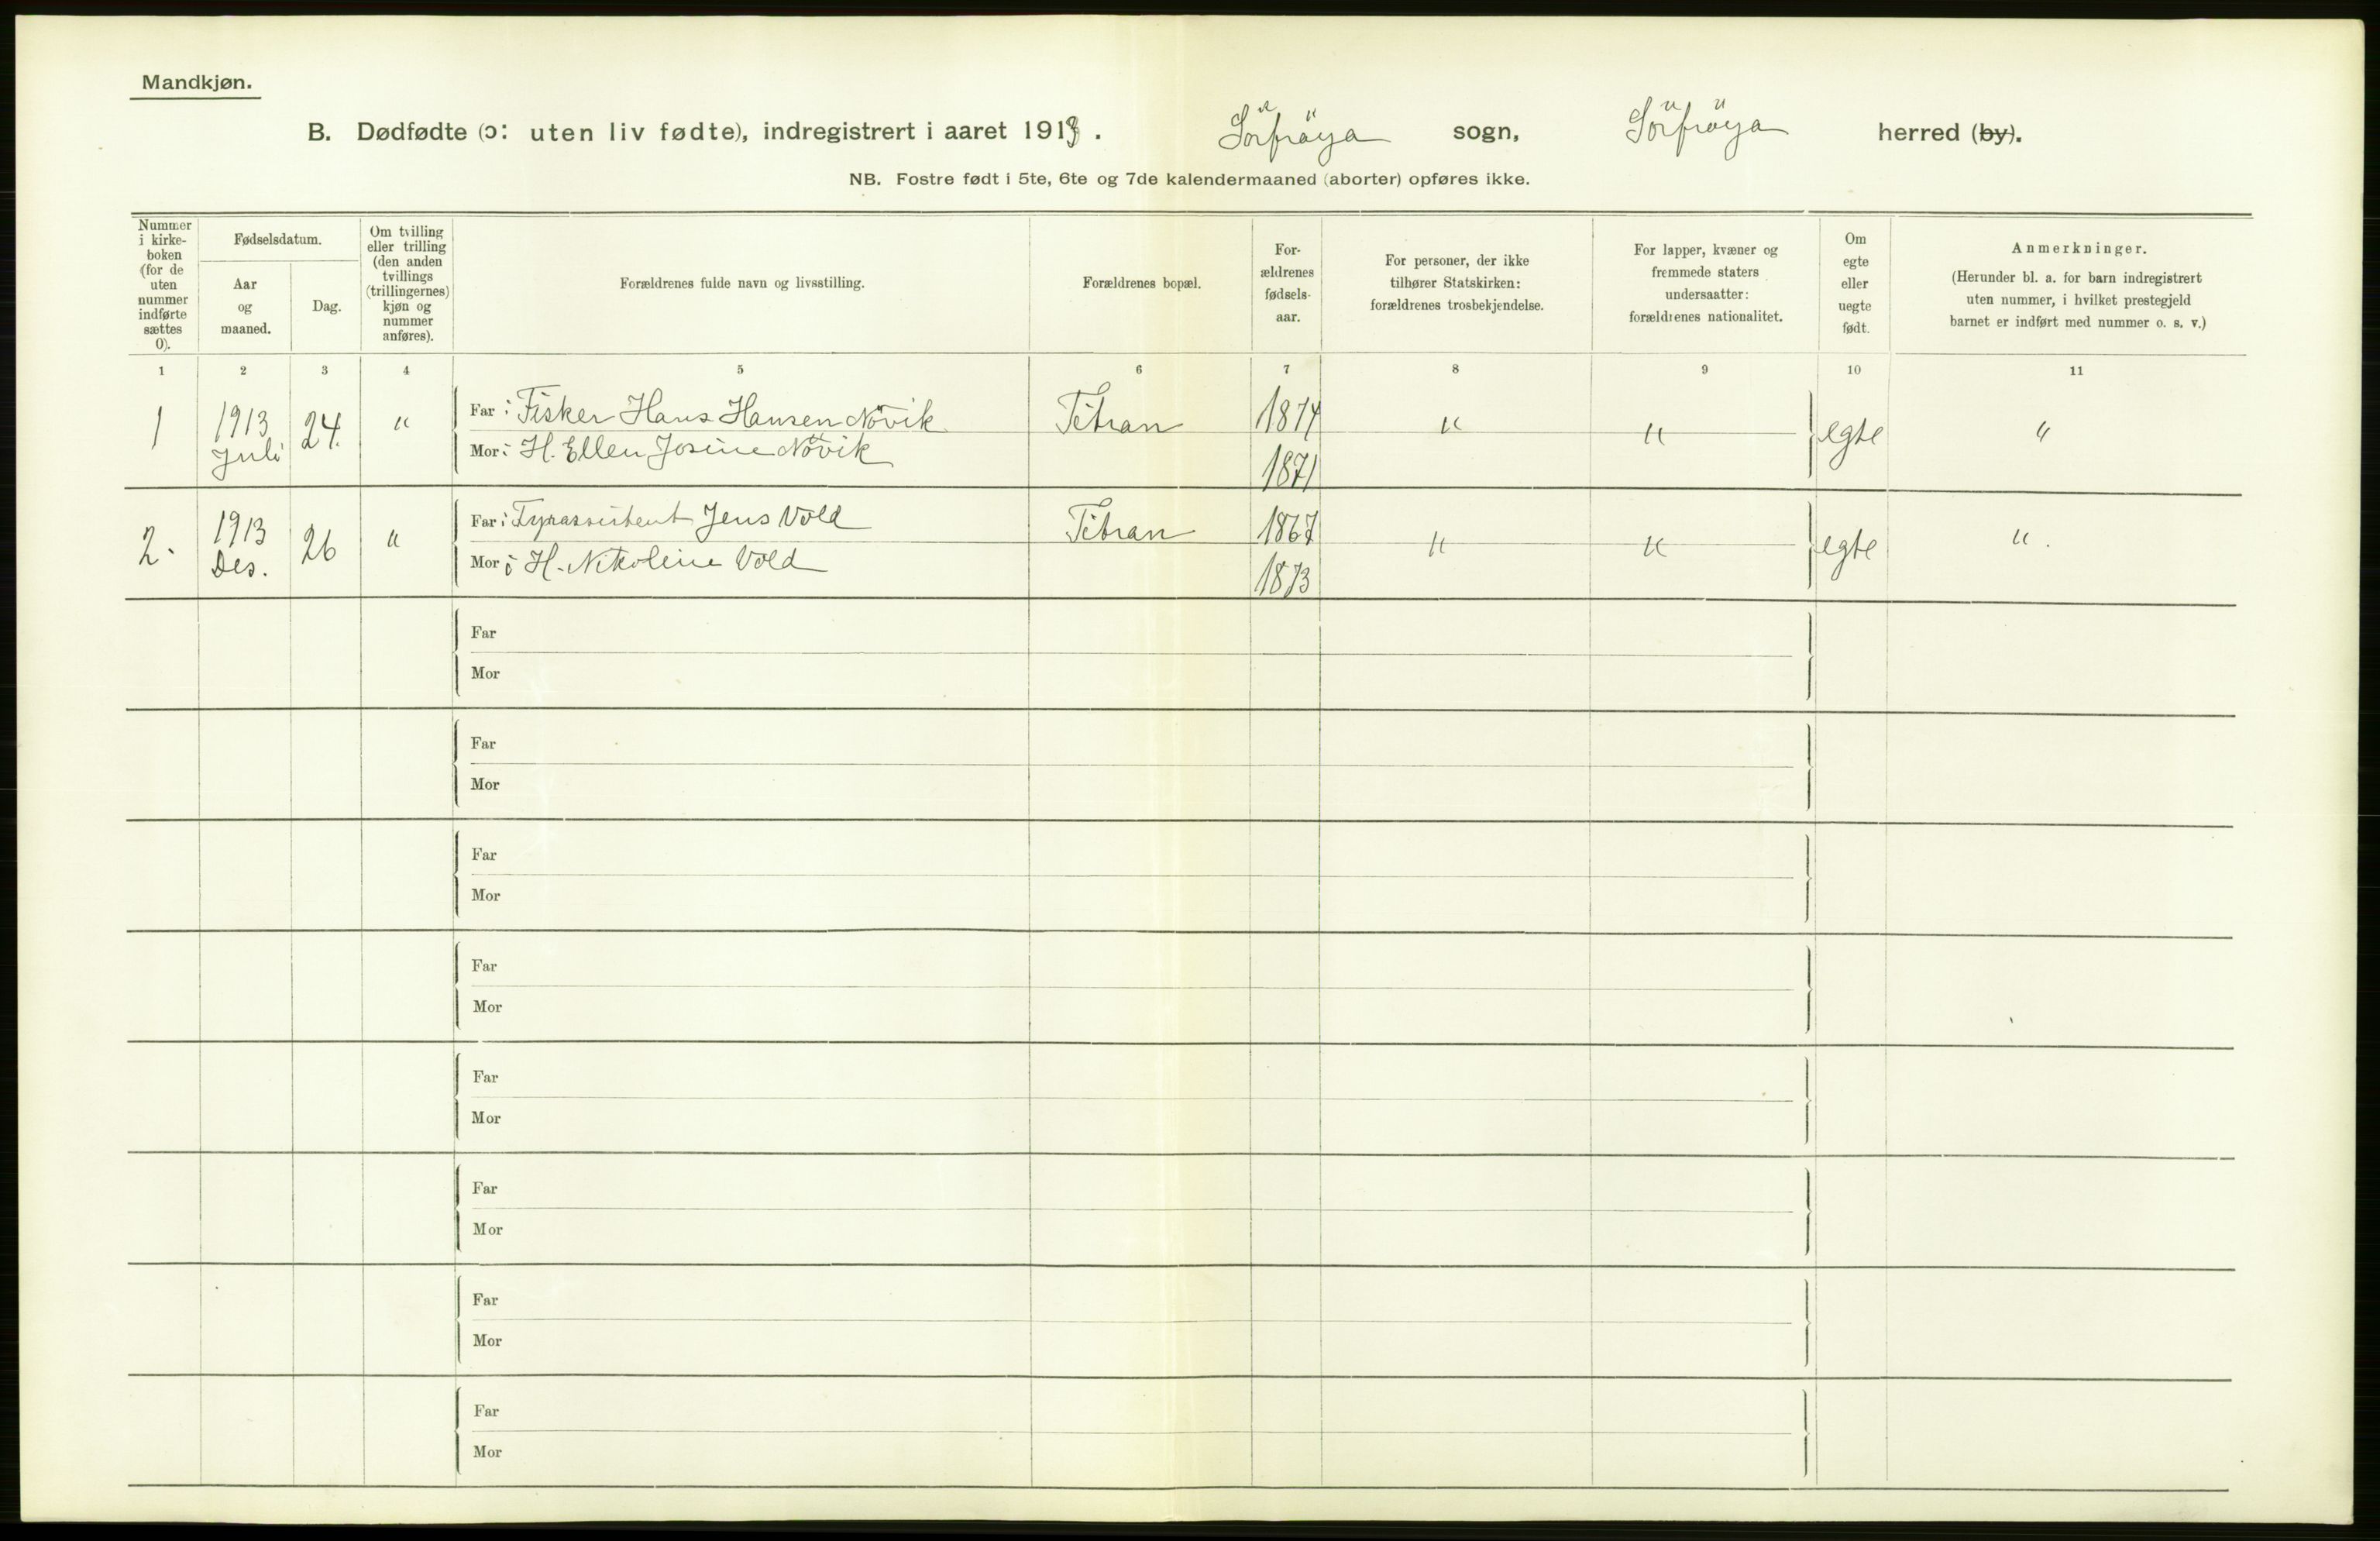 Mandkjøn.
B. Dødfødte (ɔ: uten liv fødte), indregistrert i aaret 1913. Sörfröya sogn, Sörfröya herred (by).
NB. Fostre født i 5te, 6te og 7de kalendermaaned (aborter) opføres ikke.
Nummer i kirke- boken (for de uten nummer indførte sættes 0).
Fødselsdatum.
Aar og maaned.
Dag.
Om tvilling eller trilling (den anden tvillings (trillingernes) kjøn og nummer anføres).
Forældrenes fulde navn og livsstilling.
Forældrenes bopæl.
For- ældrenes fødsels- aar.
For personer, der ikke tilhører Statskirken: forældrenes trosbekjendelse.
For lapper, kvæner og fremmede staters undersaatter: forældrenes nationalitet.
Om egte eller uegte født.
Anmerkninger.
(Herunder bl. a. for barn indregistrert uten nummer, i hvilket prestegjeld barnet er indført med nummer o. s. v.)
1 2 3 4 5 6 7 8 9 10 11
1 1913 Juli 24. " Far: Fisker Hans Hansen Növik Titran 1874 " " egte "
Mor: H. Ellen Josine Növik 1871
2. 1913 Des. 26 " Far: Fyrassistent Jens Vold Titran 1867 " " egte ".
Mor: H. Nikoline Vold 1873
Far
Mor
Far
Mor
Far
Mor
Far
Mor
Far
Mor
Far
Mor
Far
Mor
Far
Mor